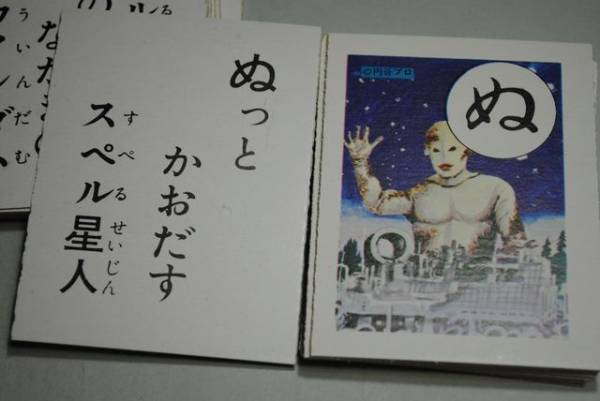 ぬっと
かおだす
スペル星人
すぺるせいじん
ぬ
©円谷プロ
ういんだむ